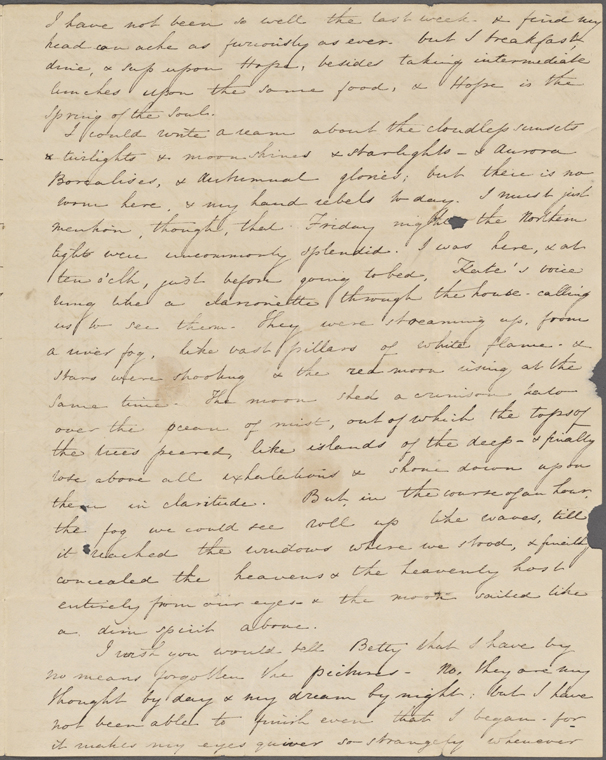 I have not been so well the last week - & find my
head can ache as furiously as ever. but I breakfast
dine, & sup upon Hope, besides taking intermediate
lunches upon the same food, & Hope is the
spring of the soul.
I could write a ream about the cloudless sunsets
& twilights & moonshines & starlights - & Aurora
Borealises, & autumnal glories; but there is no
room here, & my hand rebels to day. I must just
mention, though, that Friday night the Northern
lights were uncommonly splendid. I was here, & at
ten o'clk, just before going to bed, Kate's voice
rung like a clarionette through the house - calling
us to see them - They were streaming up, from
a river fog, like vast pillars of white flame - &
stars were shooting & the red moon rising at the
same time. The moon shed a crimson halo
over the ocean of mist, out of which the tops of
the trees peered, like islands of the deep - & finally
rose above all exhalations & shone down upon
them in claritude. But, in the course of an hour
the fog we could see roll up like waves, till
it reached the windows where we stood, & finally
concealed the heavens & the heavenly host
entirely from our eyes - & the moon sailed like
a dim spirit above.
I wish you would tell Betty that I have by
no means forgotten the pictures - No, they are my
thought by day & my dream by night; but I have
not been able to finish even that I began - for
it makes my eyes quiver so strangely whenever